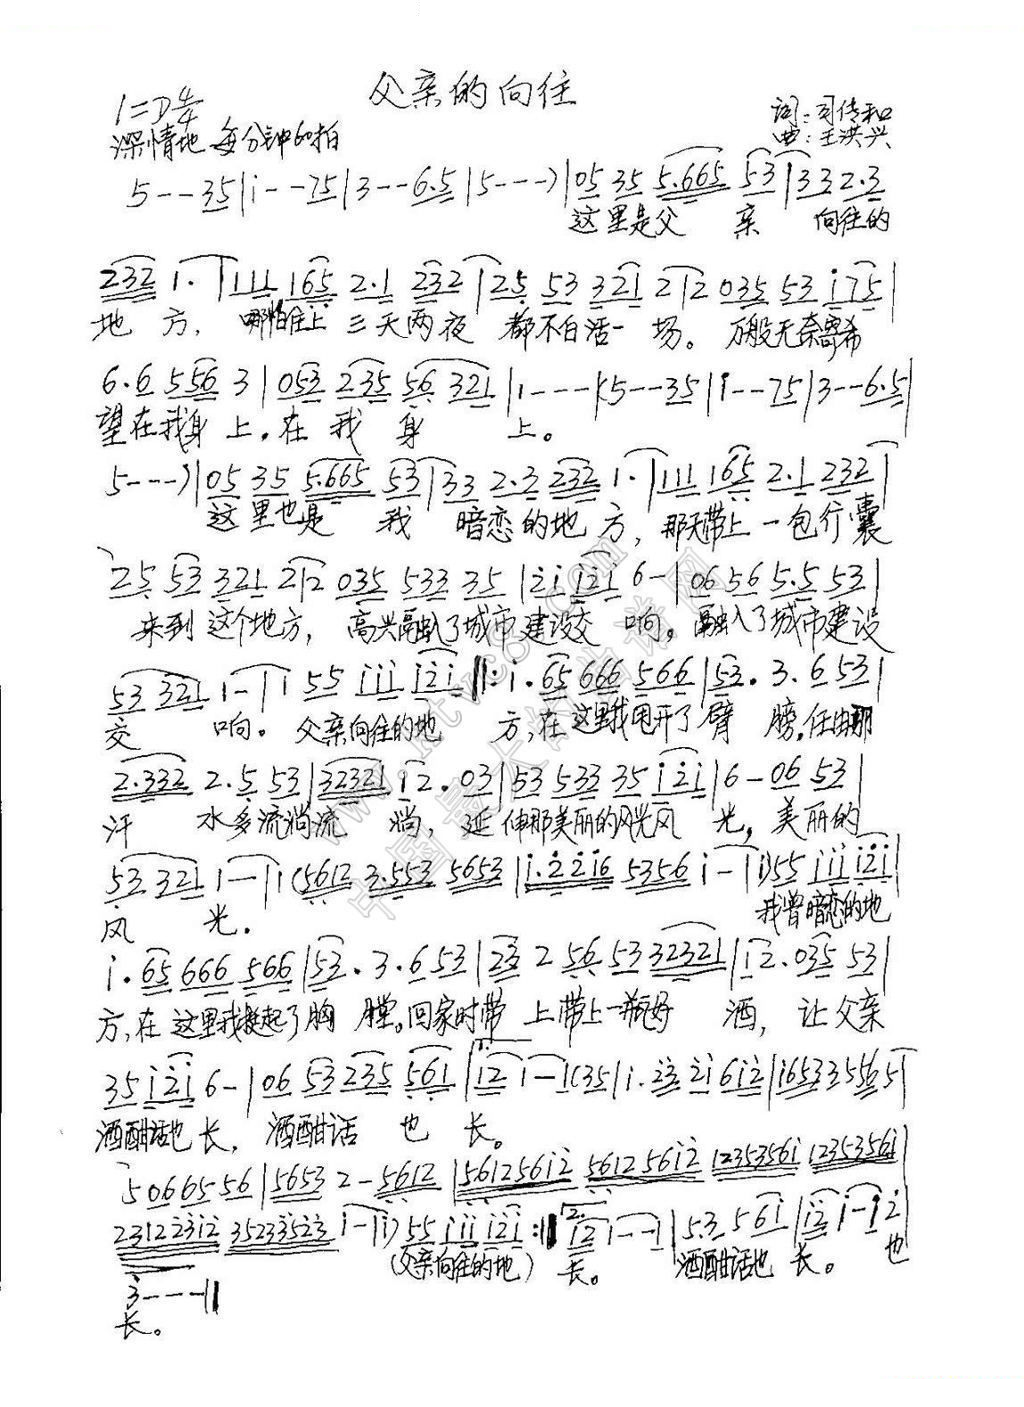 父亲的向往
1=D 4/4
词：司传和
深情地 每分钟60拍
曲：王洪兴
5---35|i--75|3---6.5|5---)|05 35 5.665 53|33 2.3
这里是父 亲 向往的
232 1.|111 165 2.1 232|25 53 321 2|2 035 53 i75|
地 方，哪怕住上 三天两夜 都不白活一 场。万般无奈寄希
6.6 556 3|053 235 56 321|1----|(5--35|i--75|3--6.5|
望在我身 上。在 我 身 上。
5---)|05 35 5.665 53|33 2.3 232 1.|111 165 2.1 232|
这里也是 我 暗恋的地 方，那天带上 一包行囊
25 53 321 2|2 035 533 35|i2i i2i 6-|06 56 5.5 53|
来到 这个地方，高兴融入了城市 建设交 响。融入了城市建设
53 321 1-|i 55 iii i2i‖:i.65 666 566|53.3.6 53|
交 响。父亲向往的地 方，在 这里我甩开了 臂 膀。任由那
2.332 2.5 53|32321 i2.03|53 533 35 i2i|6-06 53|
汗 水多流淌流 淌，延 伸那美丽的风光风 光，美丽的
53 321 1--|i(5612 3.553 5653|i.22i6 5356 i-|i)55 iii i2i|
风 光。 我曾暗恋的地
i.65 666 566|53.3.6 53|23 2 56 53 32321|i2.035 53|
方，在 这里我挺起了 胸 膛。回家时带 上带上一瓶好 酒，让父亲
35 i2i 6-|06 53 235 561|i2 i-i(35|i.23 2i 6i2|i653 35565|
酒酣话也 长，酒酣话 也 长。
5066556|5653 2-5612|561256i2 561256i2 1235356i 1235356i|
231223i2 35233523 i-|i)55 iii i2i:‖2. i2 i--|5.3 56i|i2 i-i2
(父亲向往的地) 长。 酒酣话也 长。 也
3---‖
长。
www.ktvc8.com
中国最大的曲谱网